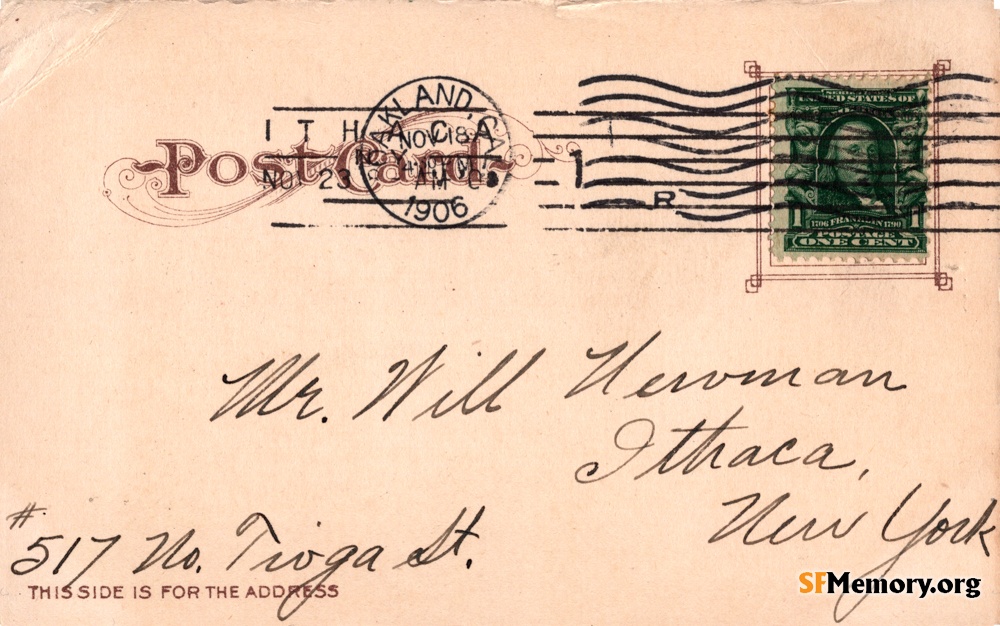 OAKLAND, CAL.
NOV 18
AM
1906
ITHACA
N.Y.
NOV 23
1
R
Post Card
SERIES
UNITED STATES OF
1 1706 FRANKLIN 1790 1
POSTAGE
ONE CENT
Mr. Will Newman
Ithaca,
New York
#517 No. Tioga St.
THIS SIDE IS FOR THE ADDRESS
SFMemory.org